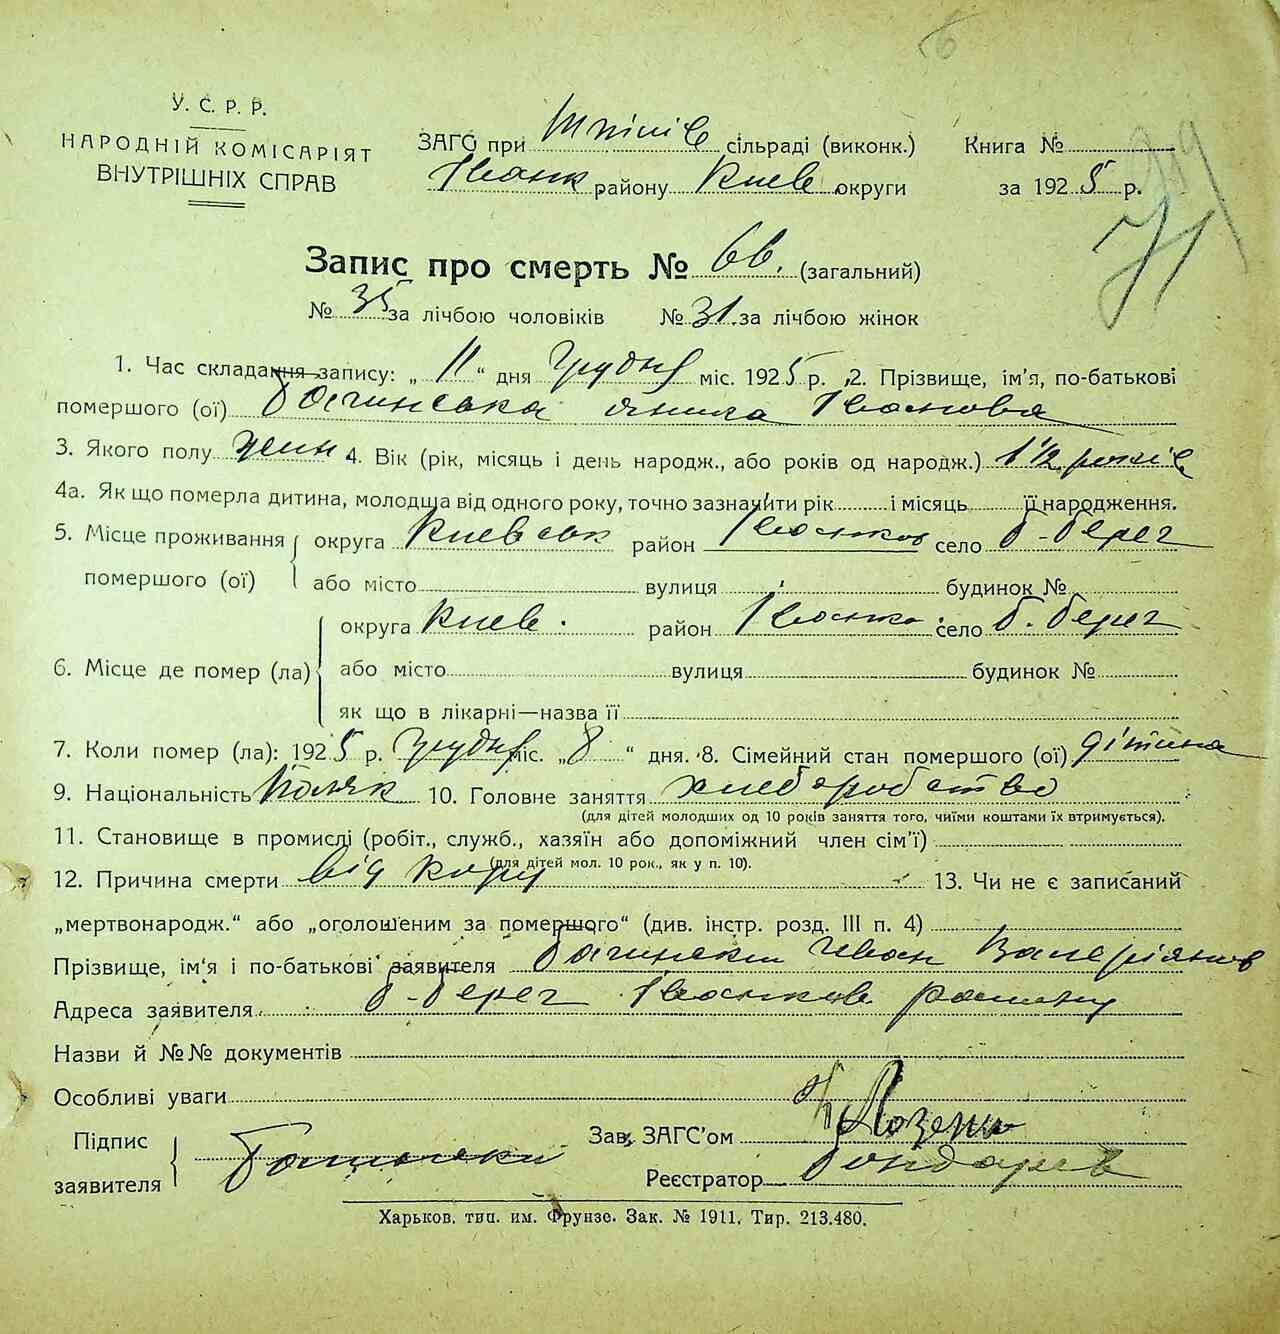 У. С. Р. Р.
НАРОДНІЙ КОМІСАРІЯТ
ВНУТРІШНІХ СПРАВ
ЗАГС при сільраді (виконк.)
Іванк району Киев округи
Книга №
за 1925 р.
71
Запис про смерть № 66. (загальний)
№ 35 за лічбою чоловіків № 31. за лічбою жінок
1. Час складання запису: „ 11 “ дня Грудня міс. 1925 р. 2. Прізвище, ім'я, по-батькові
помершого (ої) Багинська Янила Іванова
3. Якого полу жин 4. Вік (рік, місяць і день народж., або років од народж.) 1 1/2 років
4а. Як що померла дитина, молодща від одного року, точно зазначити рік і місяць її народження.
5. Місце проживання помершого (ої) округа Киевськ район Іванков село б-берег
або місто вулиця будинок №
6. Місце де помер (ла) округа Киев. район Іванк. село б. берег
або місто вулиця будинок №
як що в лікарні—назва її
7. Коли помер (ла): 1925 р. Грудня міс. „ 8 “ дня. 8. Сімейний стан помершого (ої) дітина
9. Національність Поляк 10. Головне заняття хлеборобство
(для дітей молодших од 10 років заняття того, чиїми коштами їх втримується).
11. Становище в промислі (робіт., служб., хазяїн або допоміжний член сім'ї)
(для дітей мол. 10 рок., як у п. 10).
12. Причина смерти від кору 13. Чи не є записаний
„мертвонародж.“ або „оголошеним за помершого“ (див. інстр. розд. III п. 4)
Прізвище, ім'я і по-батькові заявителя Багински Иван Валеріянов
Адреса заявителя б-берег Іванков району
Назви й №№ документів
Особливі уваги
Підпис заявителя Багински
Зав. ЗАГС'ом
Реєстратор Бондарев
Харьков. тип. им. Фрунзе. Зак. № 1911. Тир. 213.480.